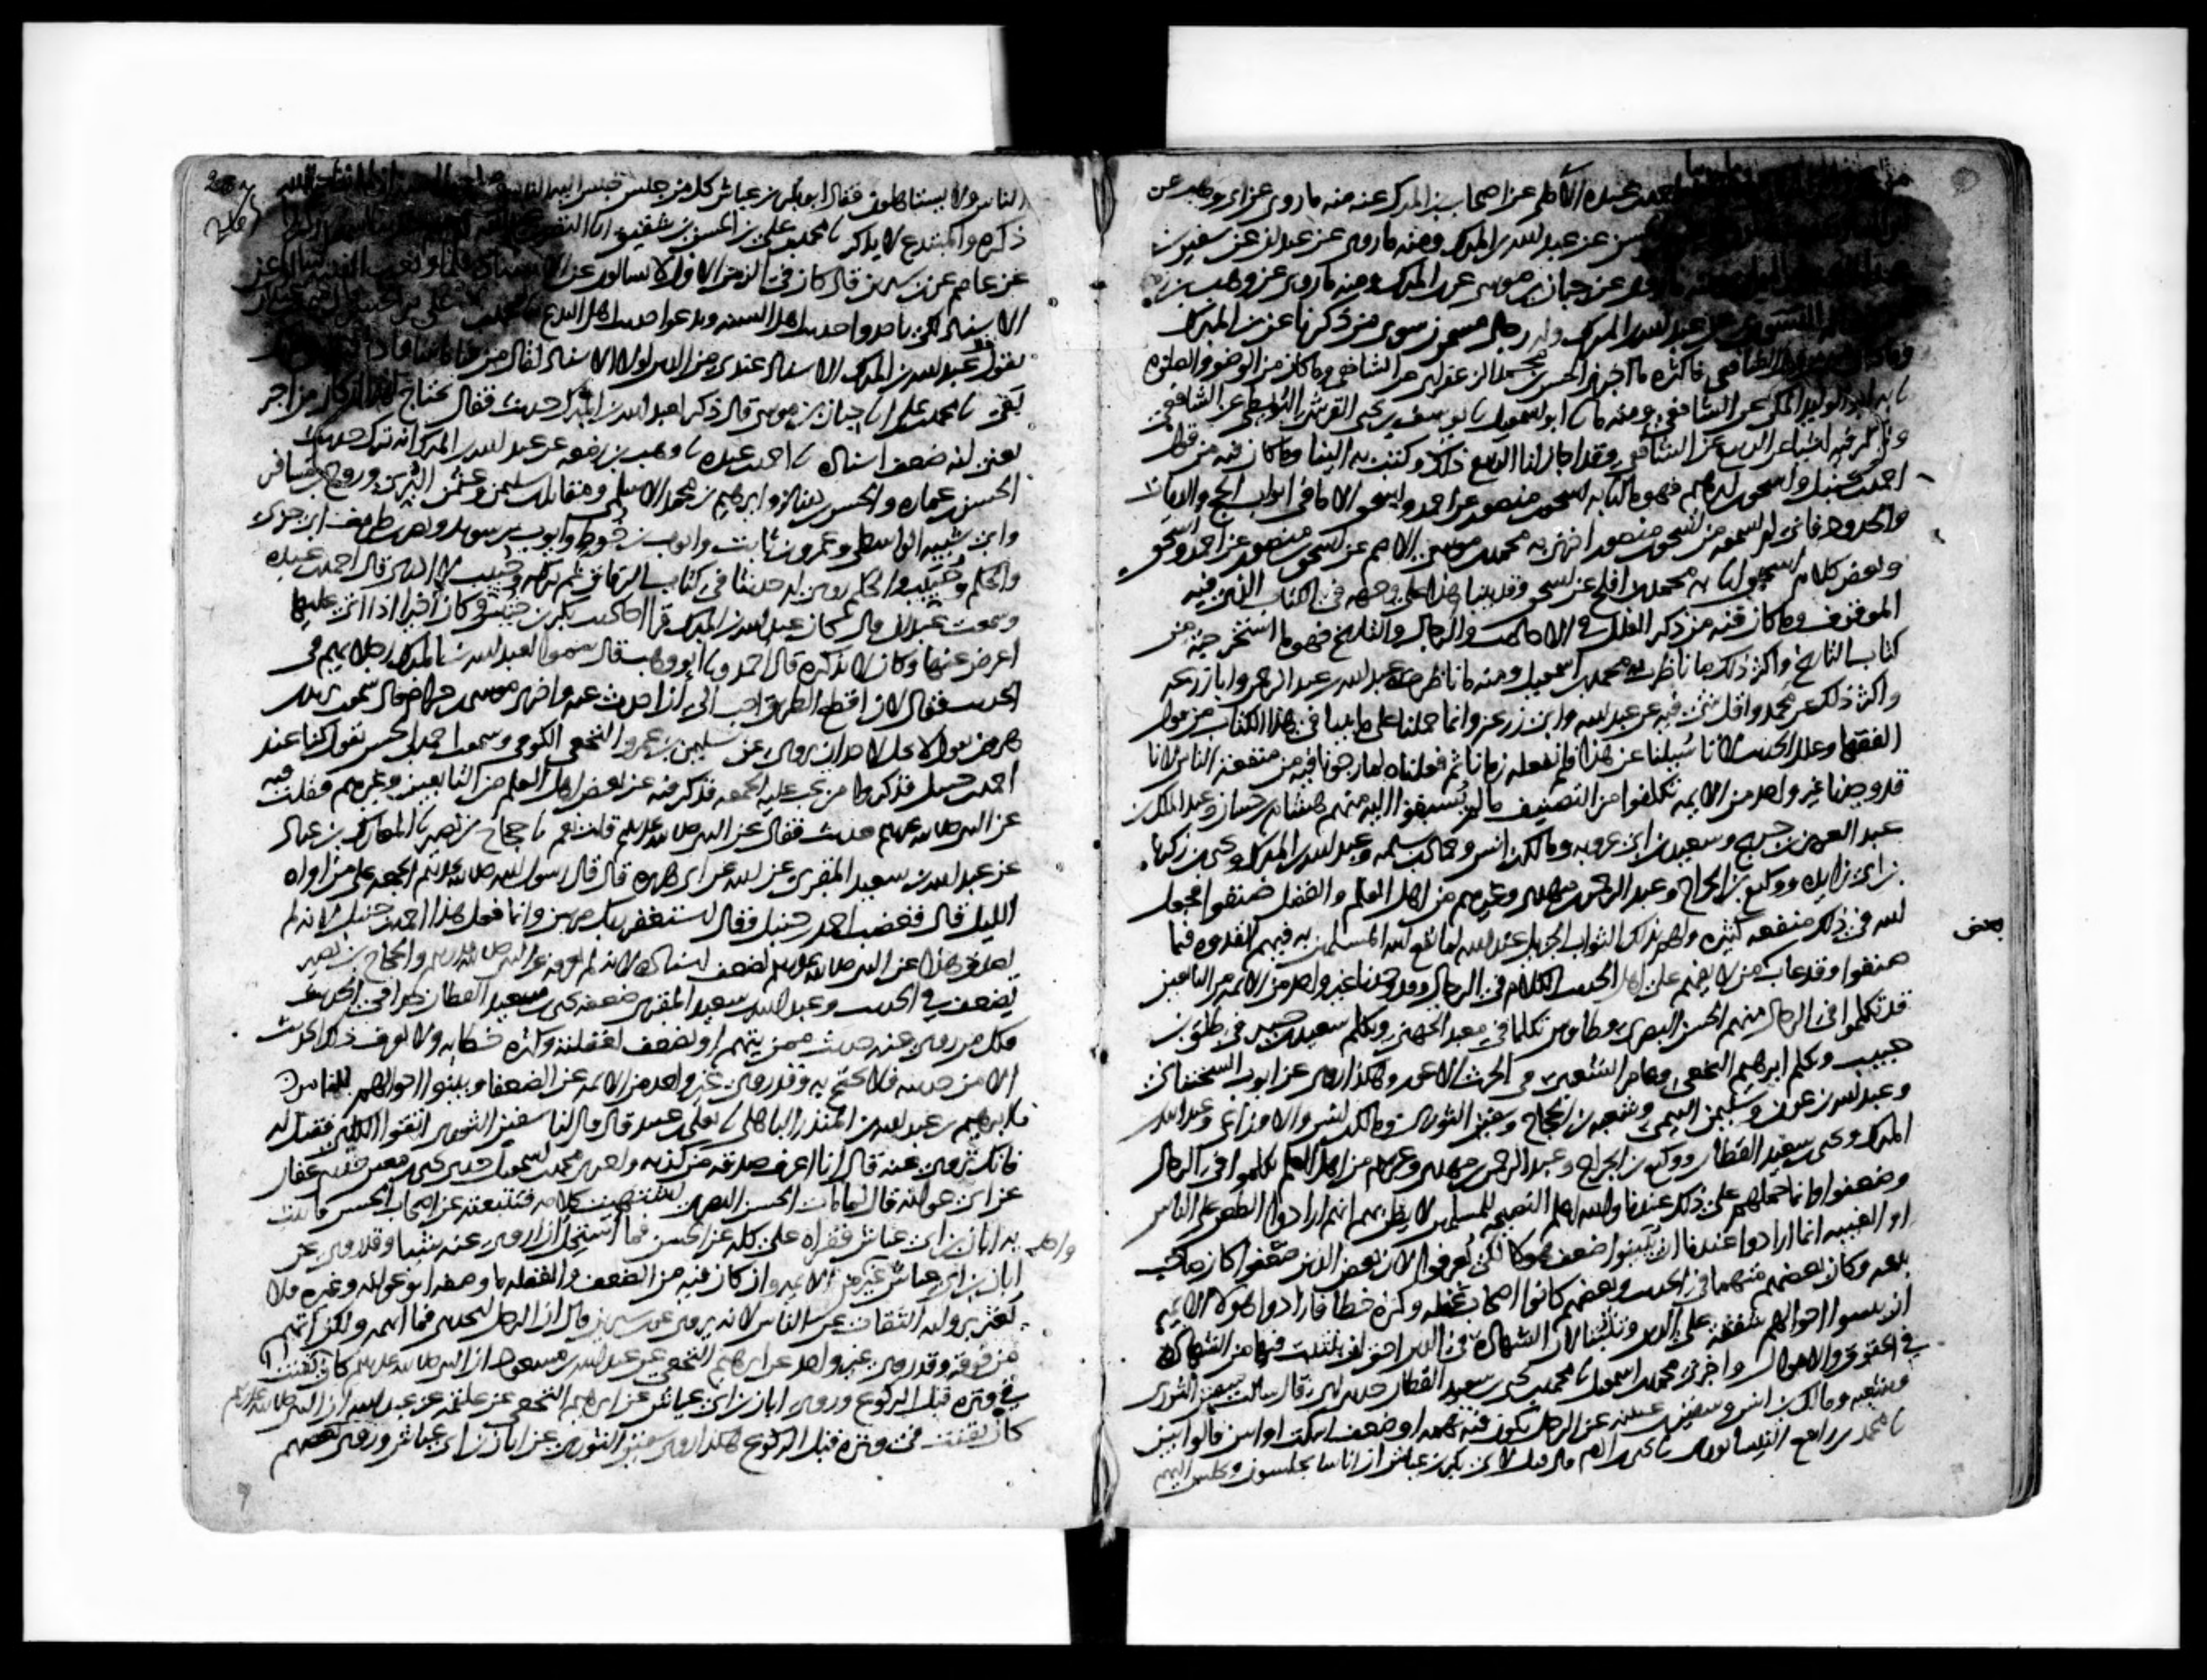 احمد بن عبده الآملي عن اصحاب بن المبرك عنه منه ما روى عن ابي وهب عن
عن عبد الله بن المبرك ومنه ما روى عن عبدان عن سفين بن
عن حبان بن موسى عن بن المبرك ومنه ما روى عن وهب بن زمعه
عن عبد الله بن المبرك وله رجال مسمون سوى من ذكرنا عن بن المبرك
الشافعي فاكثره ما اخبرني الحسن بن محمد الزعفراني عن الشافعي وما كان من الوضو والصلوه
ابو الوليد المكي عن الشافعي ومنه ما نا ابو اسمعيل نا يوسف بن يحيى القرشي البويطي عن الشافعي
وذكر فيه اشيا عن الربيع عن الشافعي وقد اجاز لنا الربيع ذلك وكتب به الينا وما كان فيه من قول
احمد بن حنبل واسحق بن ابرهيم فهو ما انا به اسحق بن منصور عن احمد واسحق الا ما في ابواب الحج والديات
والحدود فاني لم اسمعه من اسحق بن منصور اخبرني به محمد بن موسى الاصم عن اسحق بن منصور عن احمد واسحق
وبعض كلام اسحق انا به محمد بن افلح عن اسحق وقد بينا هذا على وجهه في الكتاب الذي فيه
الموقوف وما كان فيه من ذكر العلل في الاحاديث والرجال والتاريخ فهو ما استخرجته من
كتاب التاريخ واكثر ذلك ما ناظرت به محمد بن اسمعيل ومنه ما ناظرت به عبد الله بن عبد الرحمن وابا زرعه
واكثر ذلك عن محمد واقل شي فيه عن عبد الله وابي زرعه وانما حملنا على ما بينا في هذا الكتاب من قول
الفقها وعلل الحديث لانا سئلنا عن هذا فلم نفعله زمانا ثم فعلناه لما رجونا فيه من منفعه الناس لانا
قد وجدنا غير واحد من الايمه تكلفوا من التصنيف ما لم يسبقوا اليه منهم هشام بن حسان وعبد الملك بن
عبد العزيز بن جريج وسعيد بن ابي عروبه ومالك بن انس وحماد بن سلمه وعبد الله بن المبرك ويحيى بن زكريا
بن ابي زايده ووكيع بن الجراح وعبد الرحمن بن مهدي وغيرهم من اهل العلم والفضل صنفوا فجعل
الله في ذلك منفعه كثيره ولهم بذلك الثواب الجزيل عند الله لما نفع الله المسلمين به فبهم القدوه فيما
صنفوا وقد عاب بعض من لا يفهم على اهل الحديث الكلام في الرجال وقد وجدنا غير واحد من الايمه من التابعين
قد تكلموا في الرجال منهم الحسن البصري وطاوس تكلما في معبد الجهني وتكلم سعيد بن جبير في طلق بن
حبيب وتكلم ابرهيم النخعي وعامر الشعبي في الحرث الاعور وهكذا روي عن ايوب السختياني
وعبد الله بن عون وسليمن التيمي وشعبه بن الحجاج وسفين الثوري ومالك بن انس والاوزاعي وعبد الله بن
المبرك ويحيى بن سعيد القطان ووكيع بن الجراح وعبد الرحمن بن مهدي وغيرهم من اهل العلم تكلموا في الرجال
وضعفوا وانما حملهم على ذلك عندنا والله اعلم النصيحه للمسلمين لا يظن بهم انهم ارادوا الطعن على الناس
او الغيبه انما ارادوا عندنا ان يبينوا ضعف هولا لكي يعرفوا لان بعض الذين ضعفوا كان صاحب
بدعه وكان بعضهم متهما في الحديث وبعضهم كانوا اصحاب غفله وكثره خطا فاراد هولا الايمه
ان يبينوا احوالهم شفقه على الدين وتثبتا لان الشهاده في الدين احق ان يتثبت فيها من الشهاده
في الحقوق والاموال واخبرني محمد بن اسمعيل نا محمد بن يحيى بن سعيد القطان حدثني ابي قال سالت سفين الثوري
وشعبه ومالك بن انس وسفين بن عيينه عن الرجل تكون فيه تهمه او ضعف اسكت او ابين قالوا بين
نا محمد بن رافع النيسابوري نا يحيى بن ادم قال قيل لابي بكر بن عياش ان اناسا يجلسون ويجلس اليهم
الناس ولا يستاهلون فقال ابو بكر بن عياش كل من جلس جلس اليه الناس
ذكره والمبتدع لا يذكر نا محمد بن علي بن الحسن بن شقيق انا النضر
عن عاصم عن بن سيرين قال كان في الزمن الاول لا يسالون عن الاسناد فلما وقعت الفتنه سالوا عن
الاسناد لكي ياخذوا حديث اهل السنه ويدعوا حديث اهل البدع
يقول عبد الله بن المبرك الاسناد عندي من الدين لولا الاسناد لقال من شا ما شا فاذا
بقي نا محمد بن علي انا حبان بن موسى قال ذكر لعبد الله بن المبرك حديث فقال يحتاج لهذا اركان من اجر
يعني انه ضعف اسناده نا احمد بن عبده نا وهب بن زمعه عن عبد الله بن المبرك انه ترك حديث
الحسن بن عماره والحسن بن دينار وابرهيم بن محمد الاسلمي ومقاتل بن سليمن وعثمن البري وروح بن مسافر
وابي شيبه الواسطي وعمرو بن ثابت وايوب بن خوط وايوب بن سويد ونصر بن طريف ابي جزي
والحكم وحبيب والحكم روى له حديثا في كتاب الرقاق ثم تركه وحبيب لا ادري قال احمد بن عبده
وسمعت عبدان قال كان عبد الله بن المبرك قرا احاديث بكر بن خنيس وكان اخيرا اذا اتى عليها
اعرض عنها وكان لا يذكره قال احمد ونا ابو وهب قال سموا لعبد الله بن المبرك رجلا يهم في
الحديث فقال لان اقطع الطريق احب الي ان احدث عنه واخبرني موسى بن حزام قال سمعت يزيد بن
هرون يقول لا يحل لاحد ان يروي عن سليمن بن عمرو النخعي الكوفي وسمعت احمد بن الحسن يقول كنا عند
احمد بن حنبل فذكروا من تجب عليه الجمعه فذكر فيه عن بعض اهل العلم من التابعين وغيرهم فقلت فيه
عن النبي صلى الله عليه وسلم حديث فقال عن النبي صلى الله عليه وسلم قلت نعم نا حجاج بن نصير نا المعارك بن عباد
عن عبد الله بن سعيد المقبري عن ابيه عن ابي هريره قال قال رسول الله صلى الله عليه وسلم الجمعه على من اواه
الليل قال فغضب احمد بن حنبل وقال استغفر ربك مرتين وانما فعل هذا احمد بن حنبل لانه لم
يصدق هذا عن النبي صلى الله عليه وسلم لضعف اسناده لانه لم يعرفه عن النبي صلى الله عليه وسلم والحجاج بن نصير
يضعف في الحديث وعبد الله بن سعيد المقبري ضعفه يحيى بن سعيد القطان جدا في الحديث
فكل من روي عنه حديث ممن يتهم او يضعف لغفلته وكثره خطايه ولا يعرف ذلك الحديث
الا من حديثه فلا يحتج به وقد روى غير واحد من الايمه عن الضعفا وبينوا احوالهم للناس
نا ابرهيم بن عبد الله بن المنذر الباهلي نا يعلى بن عبيد قال قال لنا سفين الثوري اتقوا الكلبي فقيل له
فانك تروي عنه قال انا اعرف صدقه من كذبه واخبرني محمد بن اسمعيل حدثني يحيى بن معين حدثنا عفان
عن ابي عوانه قال لما مات الحسن البصري اشتهيت كلامه فتتبعته عن اصحاب الحسن فاتيت
به ابان بن ابي عياش فقراه علي كله عن الحسن فما استحل ان اروي عنه شيا وقد روى عن
ابان بن ابي عياش غير واحد من الايمه وان كان فيه من الضعف والغفله ما وصفه ابو عوانه وغيره فلا
يغتر بروايه الثقات عن الناس لانه يروى عن بن سيرين قال ان الرجل ليحدثني فما اتهمه ولكن اتهم
من فوقه وقد روى غير واحد عن ابرهيم النخعي عن عبد الله بن مسعود ان النبي صلى الله عليه وسلم كان يقنت
في وتره قبل الركوع وروى ابان بن ابي عياش عن ابرهيم النخعي عن علقمه عن عبد الله ان النبي صلى الله عليه وسلم
كان يقنت في وتره قبل الركوع هكذا روى سفين الثوري عن ابان بن ابي عياش وروى بعضهم